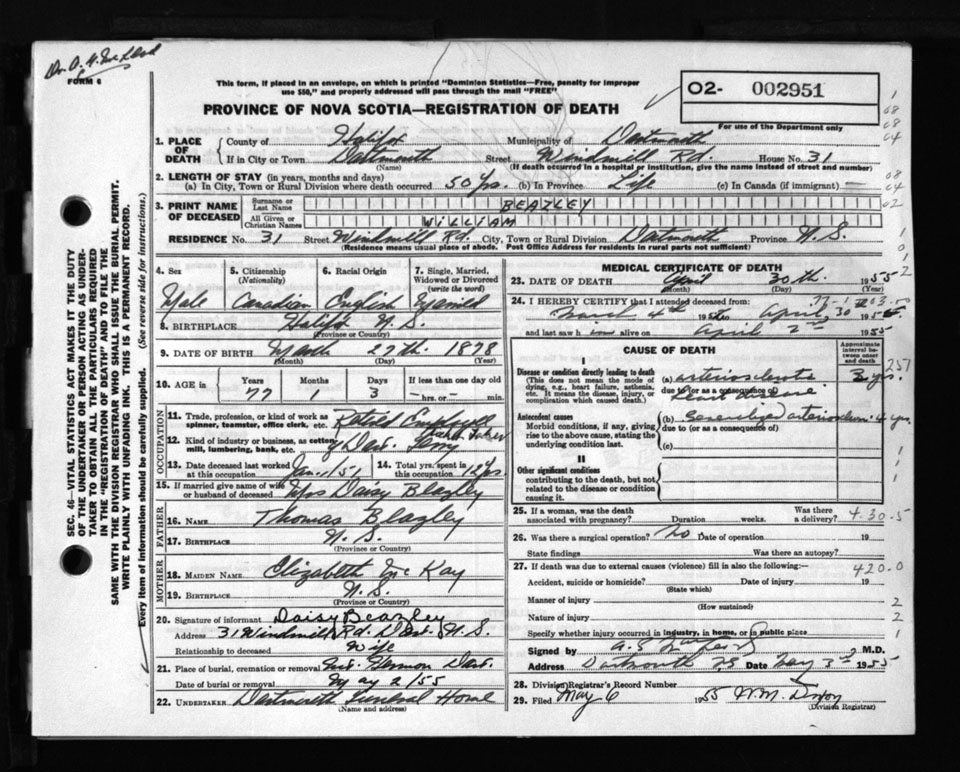 FORM 6
This form, if placed in an envelope, on which is printed "Dominion Statistics—Free, penalty for improper
use $50," and properly addressed will pass through the mail "FREE"
PROVINCE OF NOVA SCOTIA—REGISTRATION OF DEATH
O2- 002951
For use of the Department only
1. PLACE OF DEATH
County of Halifax Municipality of Dartmouth
If in City or Town Dartmouth Street Windmill Rd. House No. 31
(Name) (If death occurred in a hospital or institution, give the name instead of street and number)
2. LENGTH OF STAY (in years, months and days)
(a) In City, Town or Rural Division where death occurred 50 Yrs. (b) In Province Life (c) In Canada (if immigrant) —
3. PRINT NAME OF DECEASED
Surname or Last Name BEAZLEY
All Given or Christian Names WILLIAM
RESIDENCE No. 31 Street Windmill Rd. City, Town or Rural Division Dartmouth Province N.S.
(Residence means usual place of abode. Post Office Address for residents in rural parts not sufficient)
SEC. 46—VITAL STATISTICS ACT MAKES IT THE DUTY
OF THE UNDERTAKER OR PERSON ACTING AS UNDERTAKER TO OBTAIN ALL THE PARTICULARS REQUIRED
IN THE "REGISTRATION OF DEATH" AND TO FILE THE
SAME WITH THE DIVISION REGISTRAR WHO SHALL ISSUE THE BURIAL PERMIT.
WRITE PLAINLY WITH UNFADING INK. THIS IS A PERMANENT RECORD.
Every item of information should be carefully supplied. (See reverse side for instructions.)
4. Sex Male
5. Citizenship (Nationality) Canadian
6. Racial Origin English
7. Single, Married, Widowed or Divorced (write the word) Married
8. BIRTHPLACE Halifax N.S.
(Province or Country)
9. DATE OF BIRTH March 27th. 1878
(Month) (Day) (Year)
10. AGE in Years 77 Months 1 Days 3 If less than one day old —hrs. or —min.
OCCUPATION
11. Trade, profession, or kind of work as spinner, teamster, office clerk, etc. Retired Employee
12. Kind of industry or business, as cotton mill, lumbering, bank, etc. of Dart. Ferry Ticket Taker
13. Date deceased last worked at this occupation Jan 1/51
14. Total yrs. spent in this occupation 12 Yrs.
15. If married give name of wife or husband of deceased Mrs Daisy Beazley
FATHER
16. NAME Thomas Beazley
17. BIRTHPLACE N.S.
(Province or Country)
MOTHER
18. MAIDEN NAME Elizabeth McKay
19. BIRTHPLACE N.S.
(Province or Country)
20. Signature of informant Daisy Beazley
Address 31 Windmill Rd. Dart. N.S.
Relationship to deceased Wife
21. Place of burial, cremation or removal Mt. Hermon Dart.
Date of burial or removal May 2/55
22. UNDERTAKER Dartmouth Funeral Home
(Name and address)
MEDICAL CERTIFICATE OF DEATH
23. DATE OF DEATH April 30th. 1955
(Month) (Day) (Year)
24. I HEREBY CERTIFY that I attended deceased from:
March 4th 195 to April 30 1955
and last saw him alive on April 2nd 1955
CAUSE OF DEATH
Approximate interval between onset and death
I
Disease or condition directly leading to death
(This does not mean the mode of dying, e.g., heart failure, asthenia, etc. It means the disease, injury, or complication which caused death.)
(a) arteriosclerotic 3 yrs.
due to (or as a consequence of) heart disease
Antecedent causes
Morbid conditions, if any, giving rise to the above cause, stating the underlying condition last.
(b) Generalized arterioscler. 4 yrs.
due to (or as a consequence of)
(c)
II
Other significant conditions
contributing to the death, but not related to the disease or condition causing it.
25. If a woman, was the death associated with pregnancy? Duration weeks. Was there a delivery? 4-30-5
26. Was there a surgical operation? No Date of operation 19
State findings Was there an autopsy?
27. If death was due to external causes (violence) fill in also the following:— 420.0
Accident, suicide or homicide? Date of injury 19
(State which)
Manner of injury 2
(How sustained)
Nature of injury 2
Specify whether injury occurred in industry, in home, or in public place 1
Signed by M.D.
Address Dartmouth N.S. Date May 3rd 1955
28. Division Registrar's Record Number
29. Filed May 6 1955
(Division Registrar)